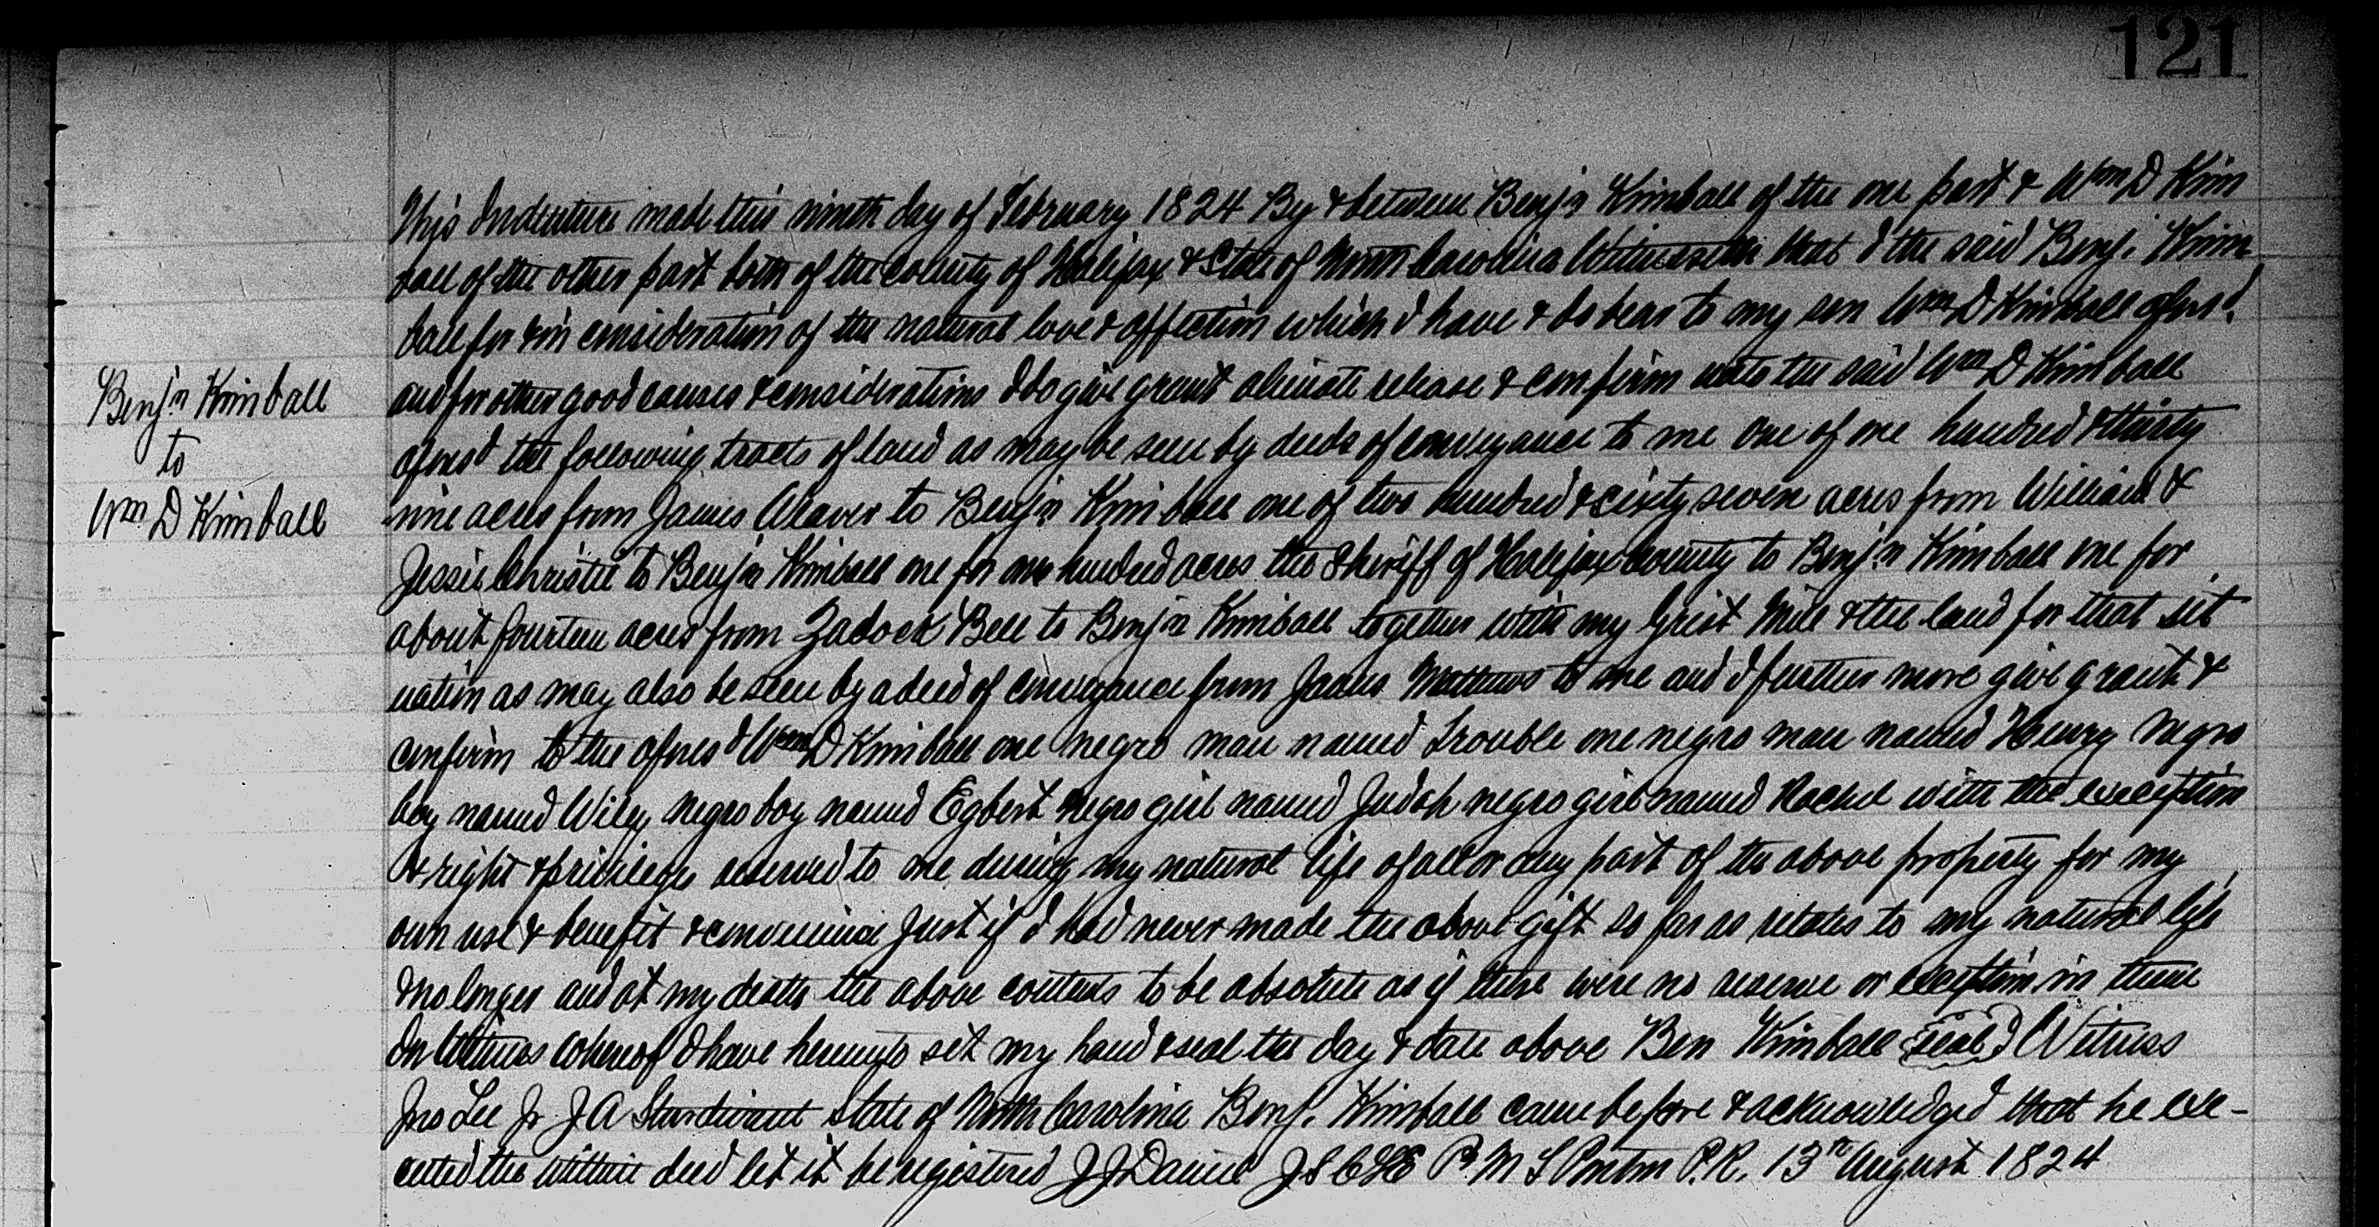 121
This Indenture made this ninth day of February 1824 By & between Benjn Kimball of the one part & Wm D Kim
ball of the other part both of the county of Halifax & State of North Carolina Witnesseth that I the said Benj. Kim
ball for & in consideration of the natural love & affection which I have & do bear to my son Wm D Kimball aforsd.
and for other good causes & considerations I do give grant alienate release & confirm unto the said Wm D Kimball
aforesd the following tracts of land as may be seen by deeds of conveyance to me one of one hundred & thirty
nine acres from James to Benjn Kimball one of two hundred & sixty seven acres from William &
Jessie Christie to Benjn Kimball one for one hundred acres the Sheriff of Halifax county to Benjn Kimball one for
about fourteen acres from Zadock Bell to Benjn Kimball together with my Grist Mill & the land for that sit
uation as may also be seen by a deed of conveyance from James Matthews to me and I further more give grant &
confirm to the aforesd Wm D Kimball one negro man named Trouble one negro man named Henry negro
boy named Wiley negro boy named Egbert negro girl named Judah negro girl named Rachel with the exception
& right & privilege reserved to me during my natural life of all or any part of the above property for my
own use & benefit & convenience just if I had never made the above gift so far as relates to my natural life
& no longer and at my death the above contents to be absolute as if there were no reserve or exception in them
In Witness whereof I have hereunto set my hand & seal the day & date above Ben Kimball seal Witness
Jno Lee Jr J A Sturdivant State of North Carolina Benj. Kimball came before & acknowledged that he exe-
cuted the within deed let it be registered J J Daniel J S C L E P. M S P.R. 13th August 1824
Benjn Kimball
to
Wm D Kimball